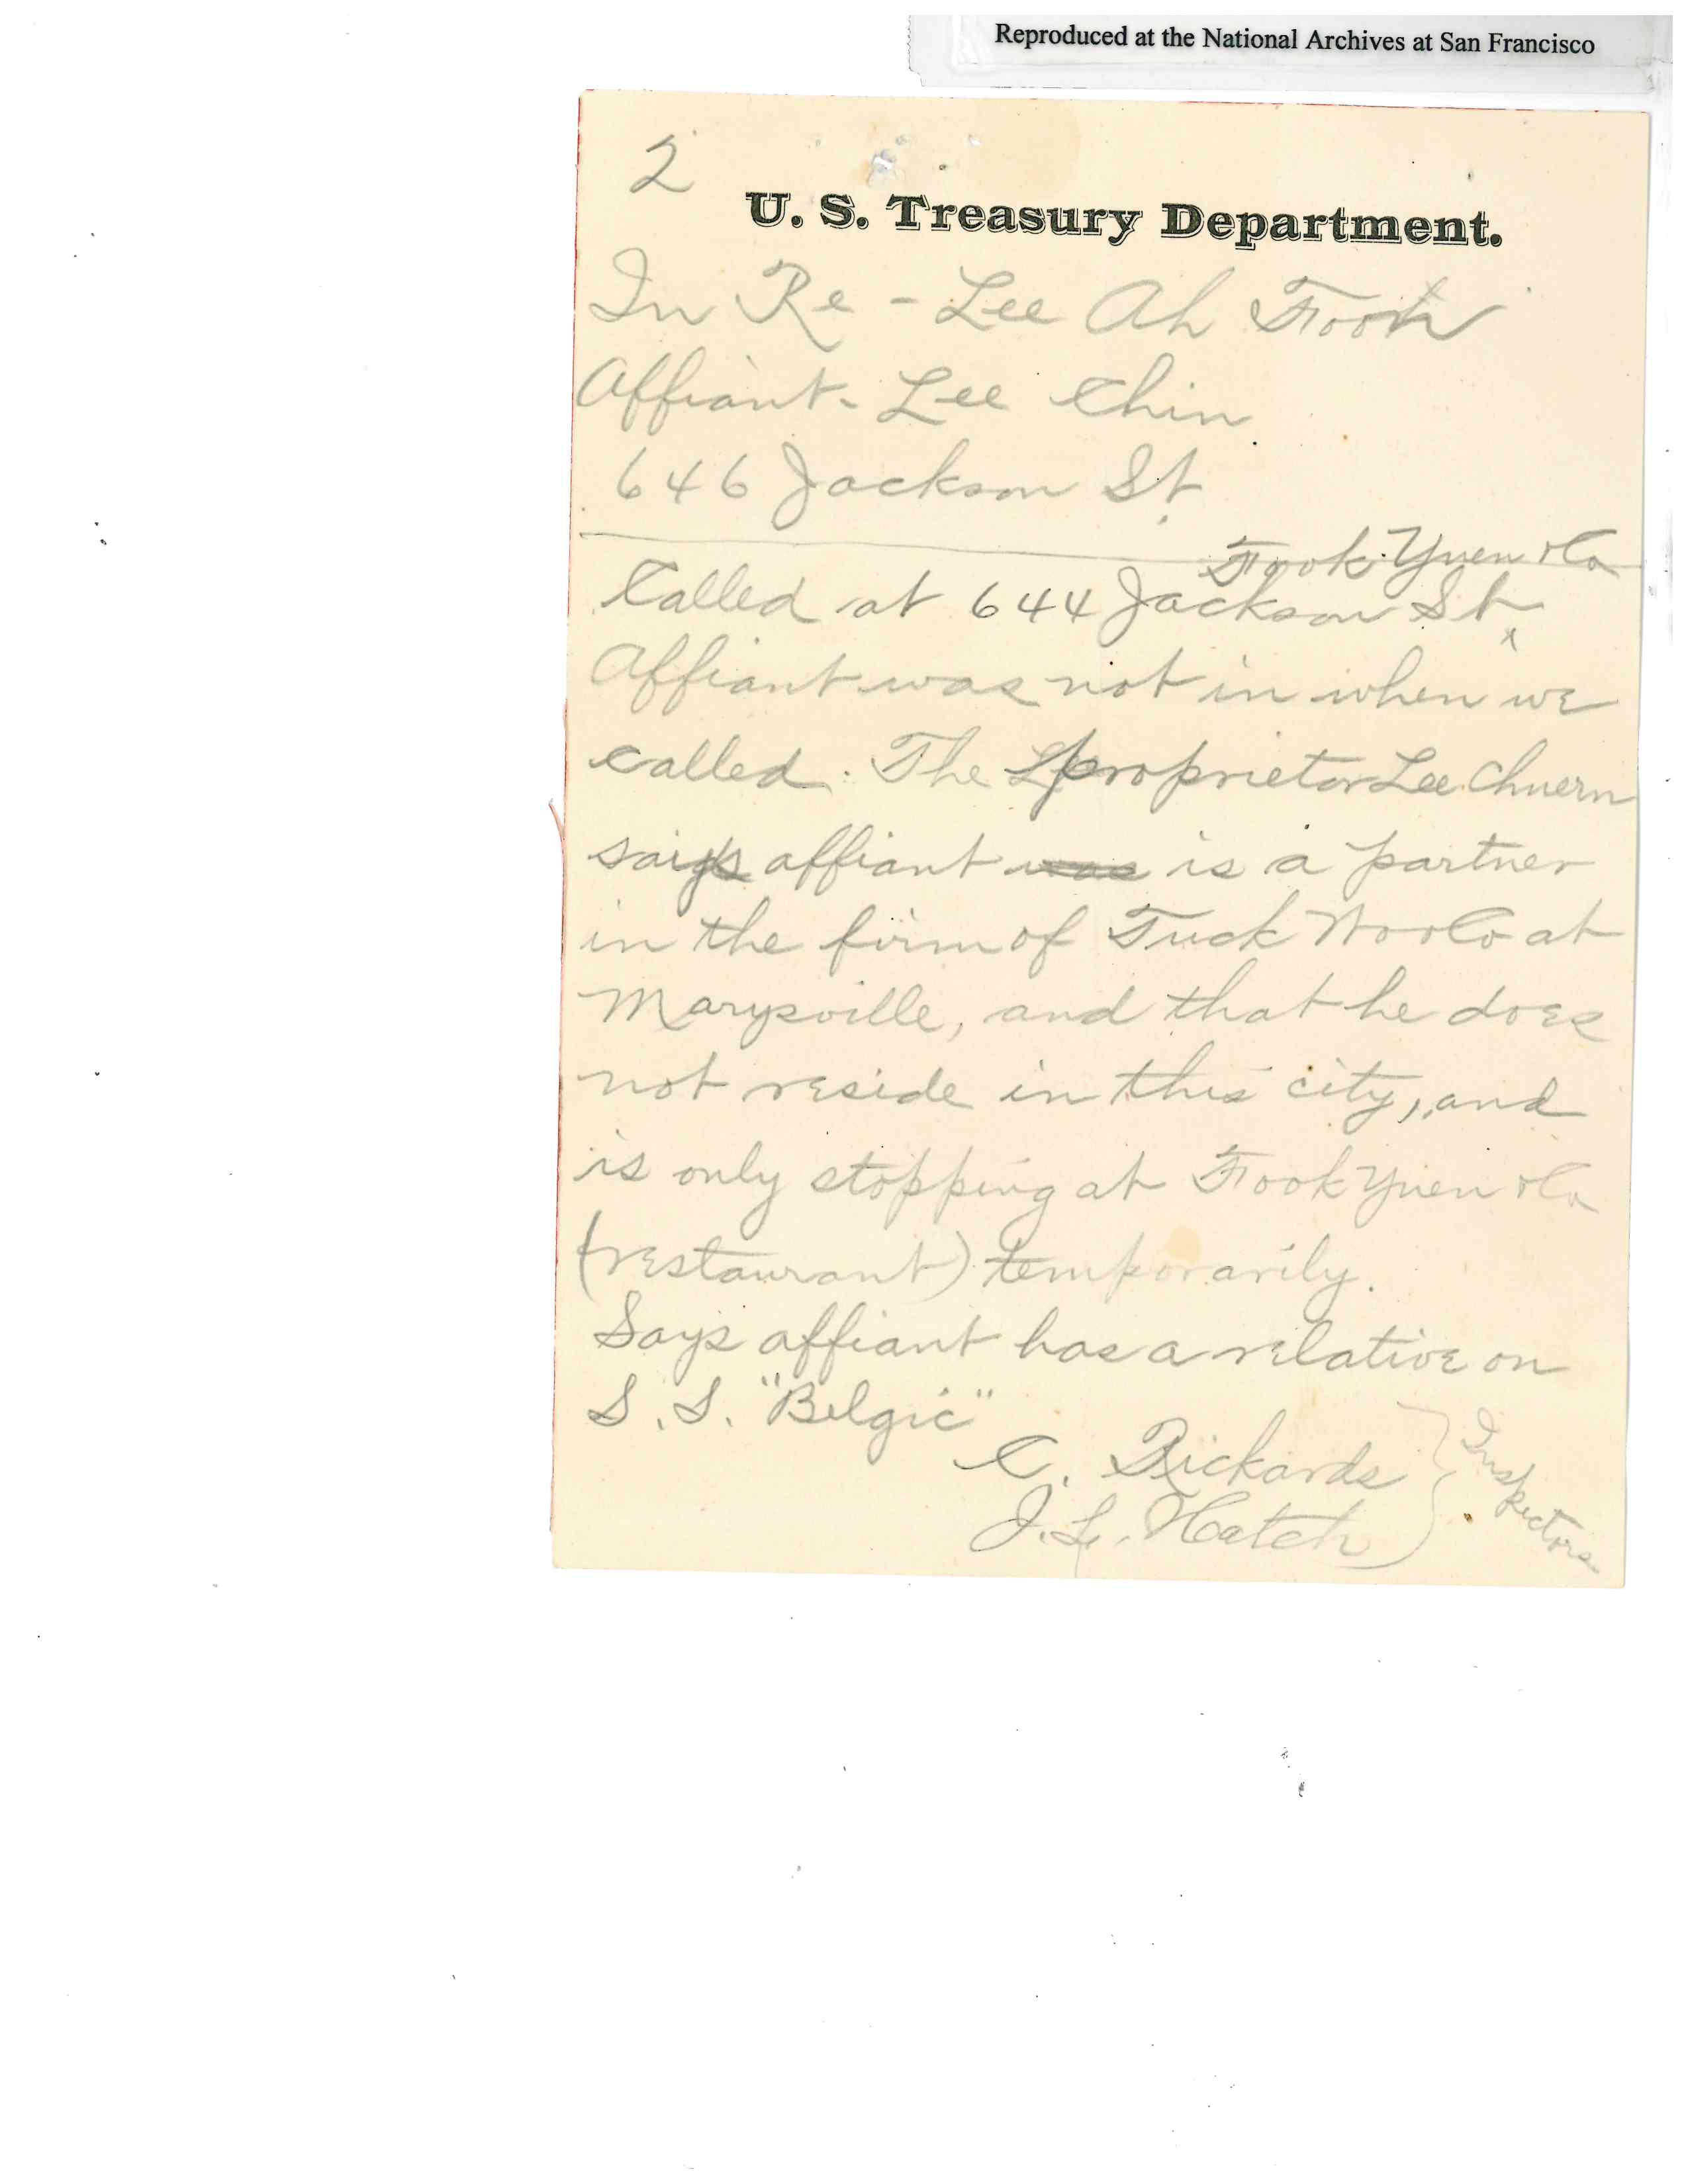 Reproduced at the National Archives at San Francisco
2
U. S. Treasury Department.
In Re - Lee Ah Fook
Affiant - Lee Chin
646 Jackson St.
Fook Yuen & Co
Called at 644 Jackson St
Affiant was not in when we
called. The proprietor Lee Chuern
says affiant was is a partner
in the firm of Tuck Woo Co at
Marysville, and that he does
not reside in this city, and
is only stopping at Fook Yuen & Co
(restaurant) temporarily.
Says affiant has a relative on
S. S. "Belgic"
C. Rickards
J. L. Hatch
Inspectors